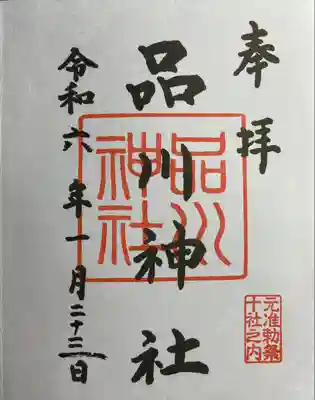 奉拝
品川神社
品川神社
元准勅祭
十社之内
令和六年一月二十三日